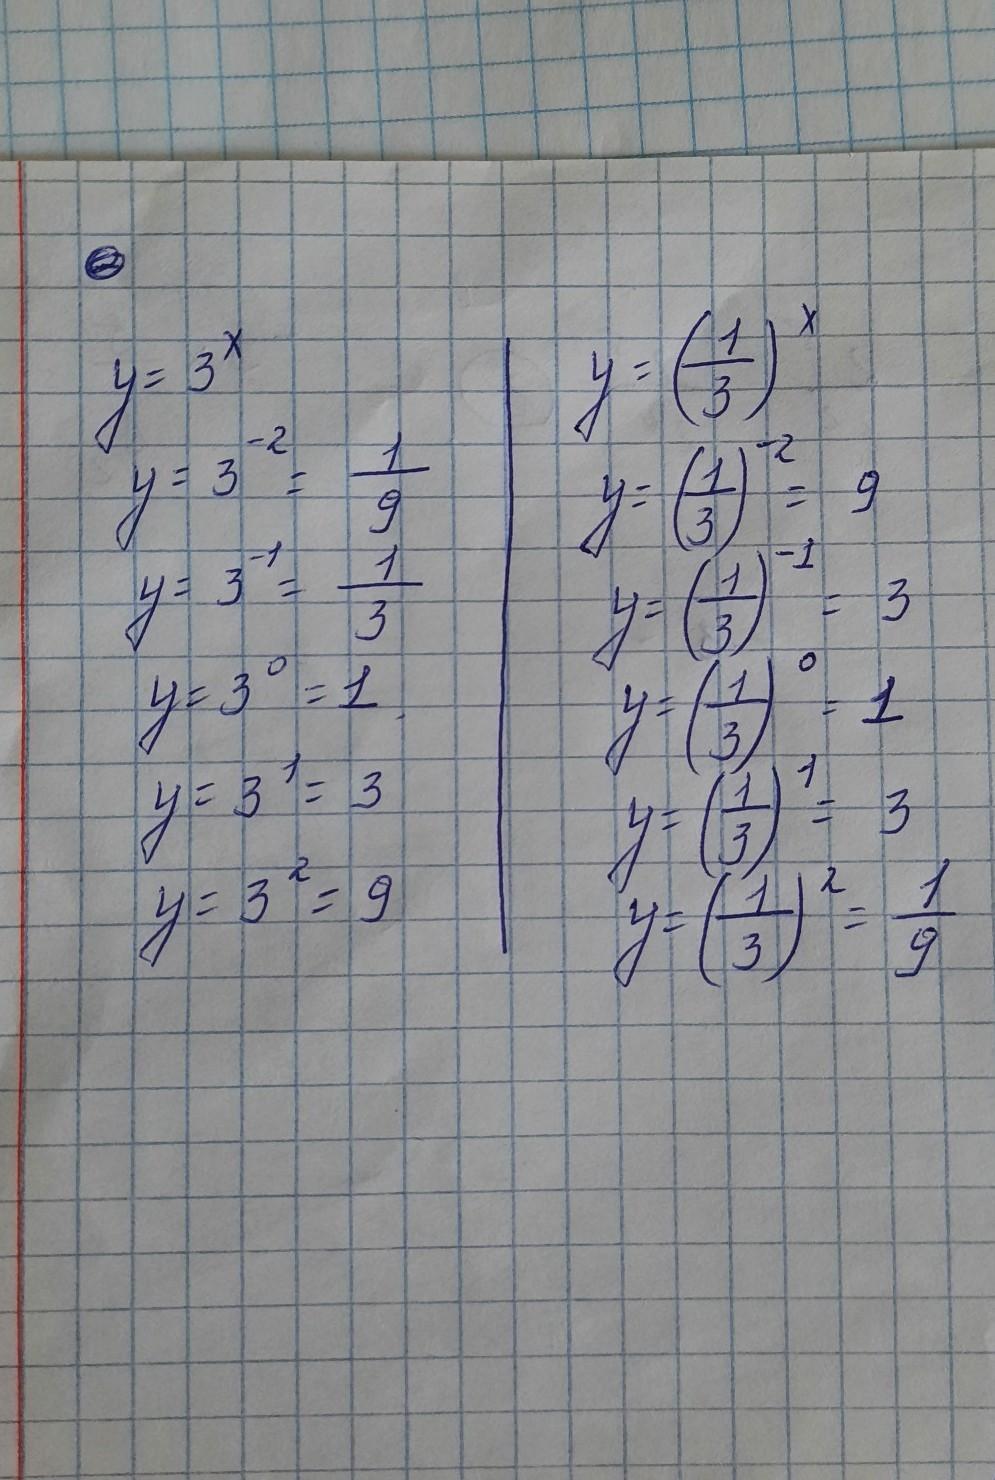 y = 3^x
y = 3^-2 = 1/9
y = 3^-1 = 1/3
y = 3^0 = 1
y = 3^1 = 3
y = 3^2 = 9
y = (1/3)^x
y = (1/3)^-2 = 9
y = (1/3)^-1 = 3
y = (1/3)^0 = 1
y = (1/3)^1 = 3
y = (1/3)^2 = 1/9